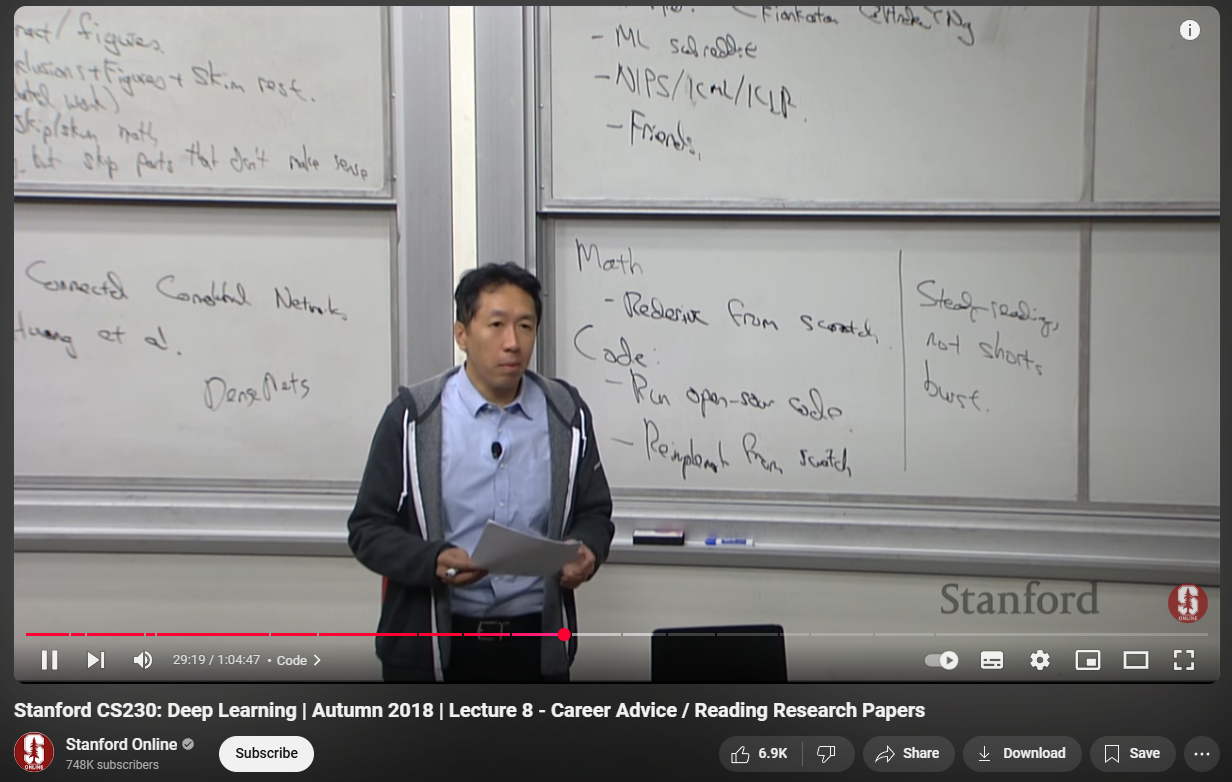 ract/figures.
clusions+Figures+Skim rest.
lated work)
Skip/skim math
but skip parts that don't make sense
(Kian Katan
Ng
- ML subreddit
- NIPS/ICML/ICLR.
- Friends.
Connected Convolutional Networks,
Huang et al.
DenseNets
Math
- Rederive from scratch.
Code:
- Run open-source code
- Reimplement from scratch
Steady reading,
not shorts
burst.
Stanford
S
ONLINE
29:19 / 1:04:47 • Code
Stanford CS230: Deep Learning | Autumn 2018 | Lecture 8 - Career Advice / Reading Research Papers
Stanford Online
748K subscribers
Subscribe
6.9K
Share
Download
Save